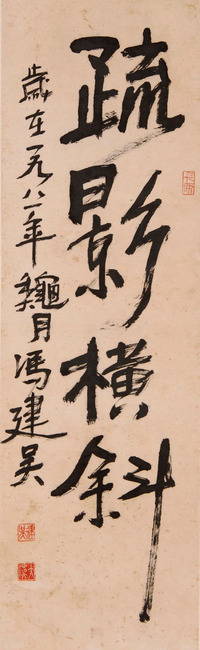 疏影橫斜
歲在一九八一年 月馮建吴